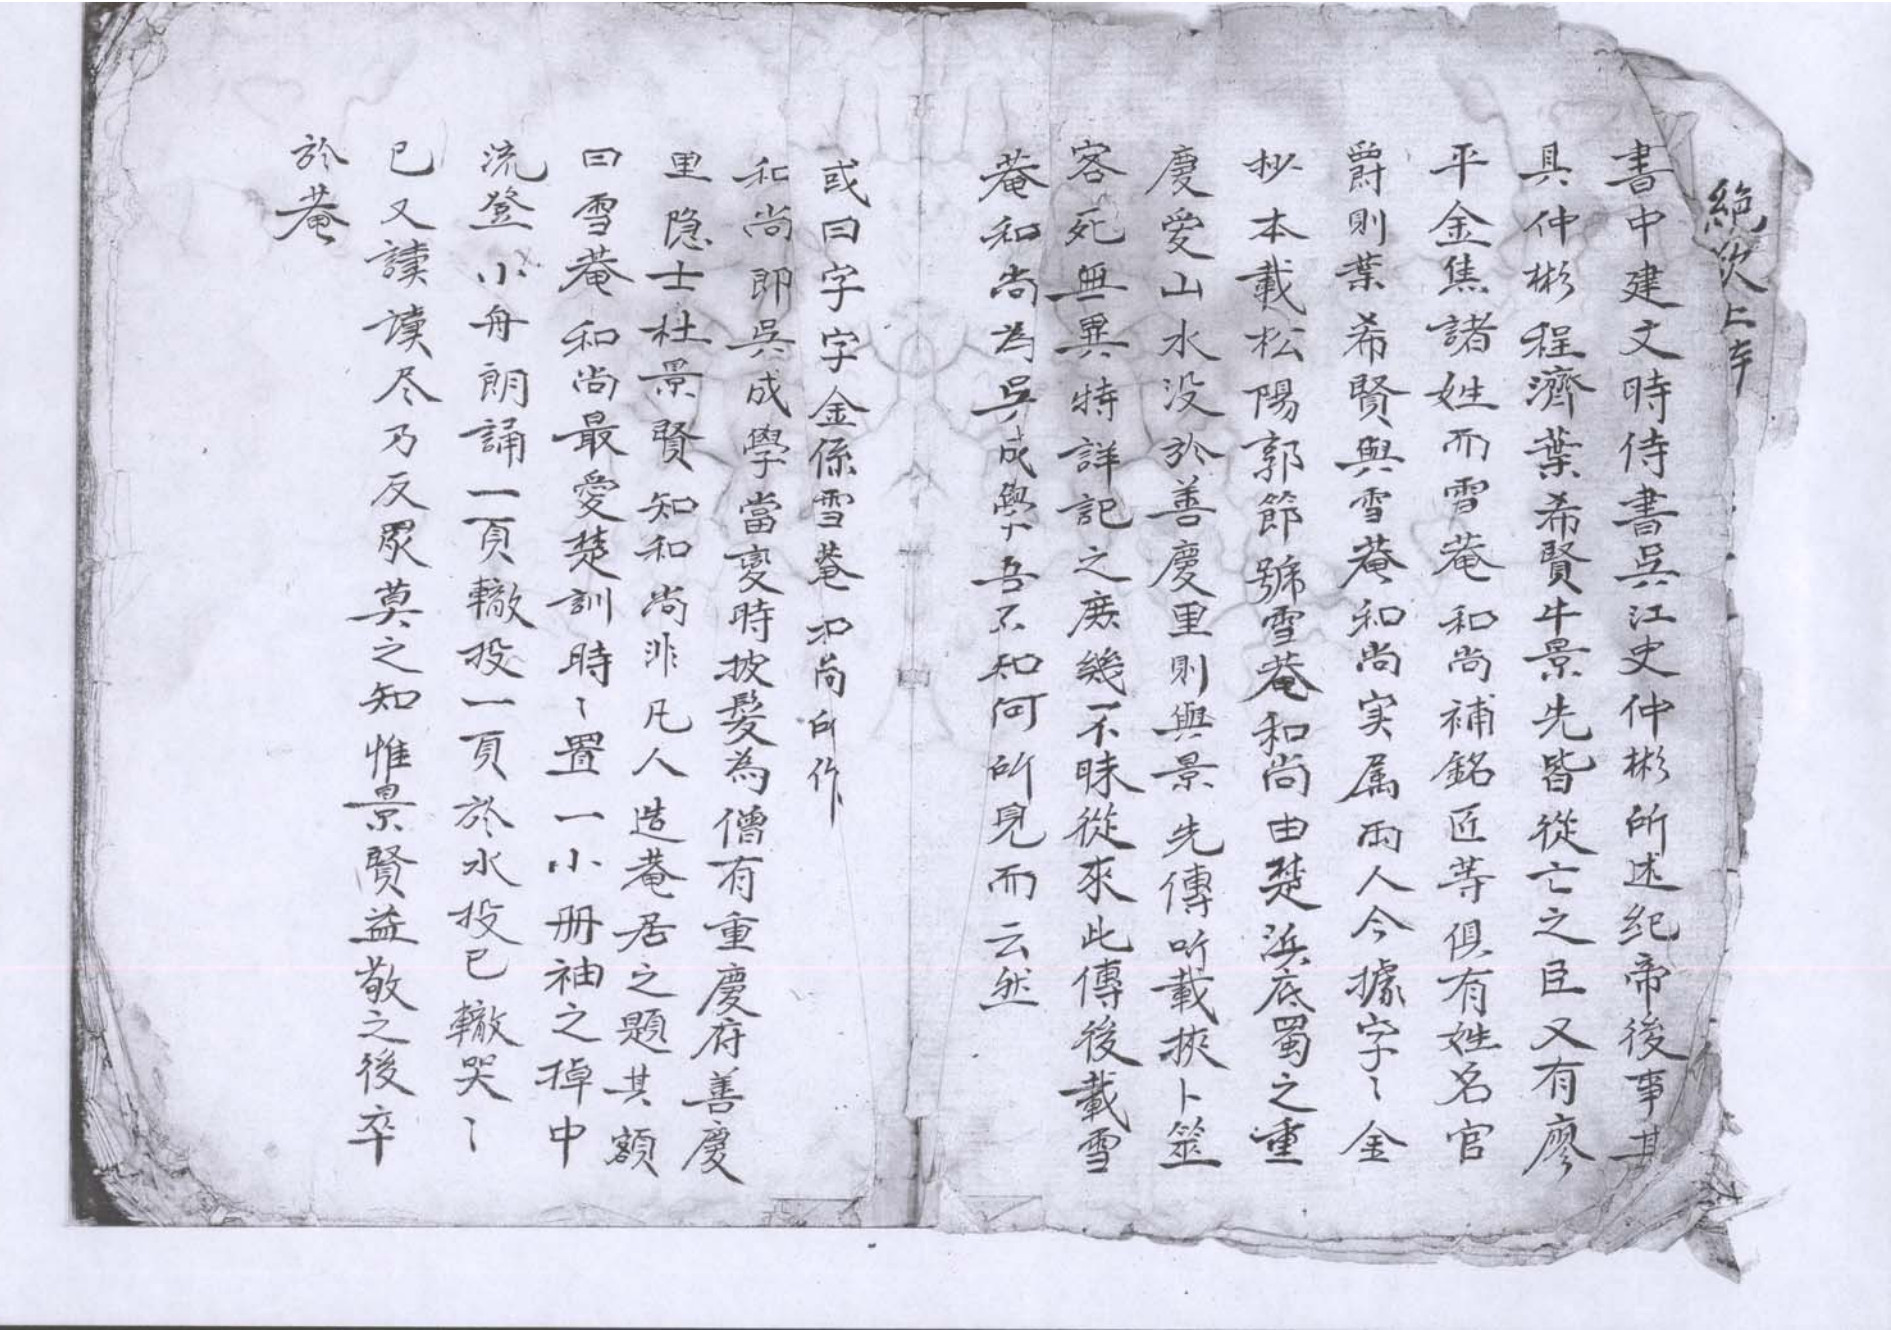 絕次上本
書中建文時侍書吳江史仲彬所述紀帝後事其
具仲彬程濟葉希賢牛景先皆從亡之臣又有廖
平金焦諸姓而雪菴和尚補銘匠等俱有姓名官
爵則葉希賢與雪菴和尚实属兩人今據字〻金
抄本載松陽郭節號雪菴和尚由楚浜底蜀之重
慶愛山水没於善慶里則與景先傳所載挾卜筮
客死無異特詳記之庻幾不昧從來此傳後載雪
菴和尚為吳成學吾不知何所見而云然
或曰字字金係雪菴和尚所作
和尚即吳成學當變時披髮為僧有重慶府善慶
里隐士杜景賢知和尚非凡人造菴居之題其額
曰雪菴和尚最愛楚訓時〻置一小册袖之掉中
流登小舟朗誦一頁轍投一頁於水投已轍哭〻
已又讀讀尽乃反眾莫之知惟景賢益敬之後卒
於菴